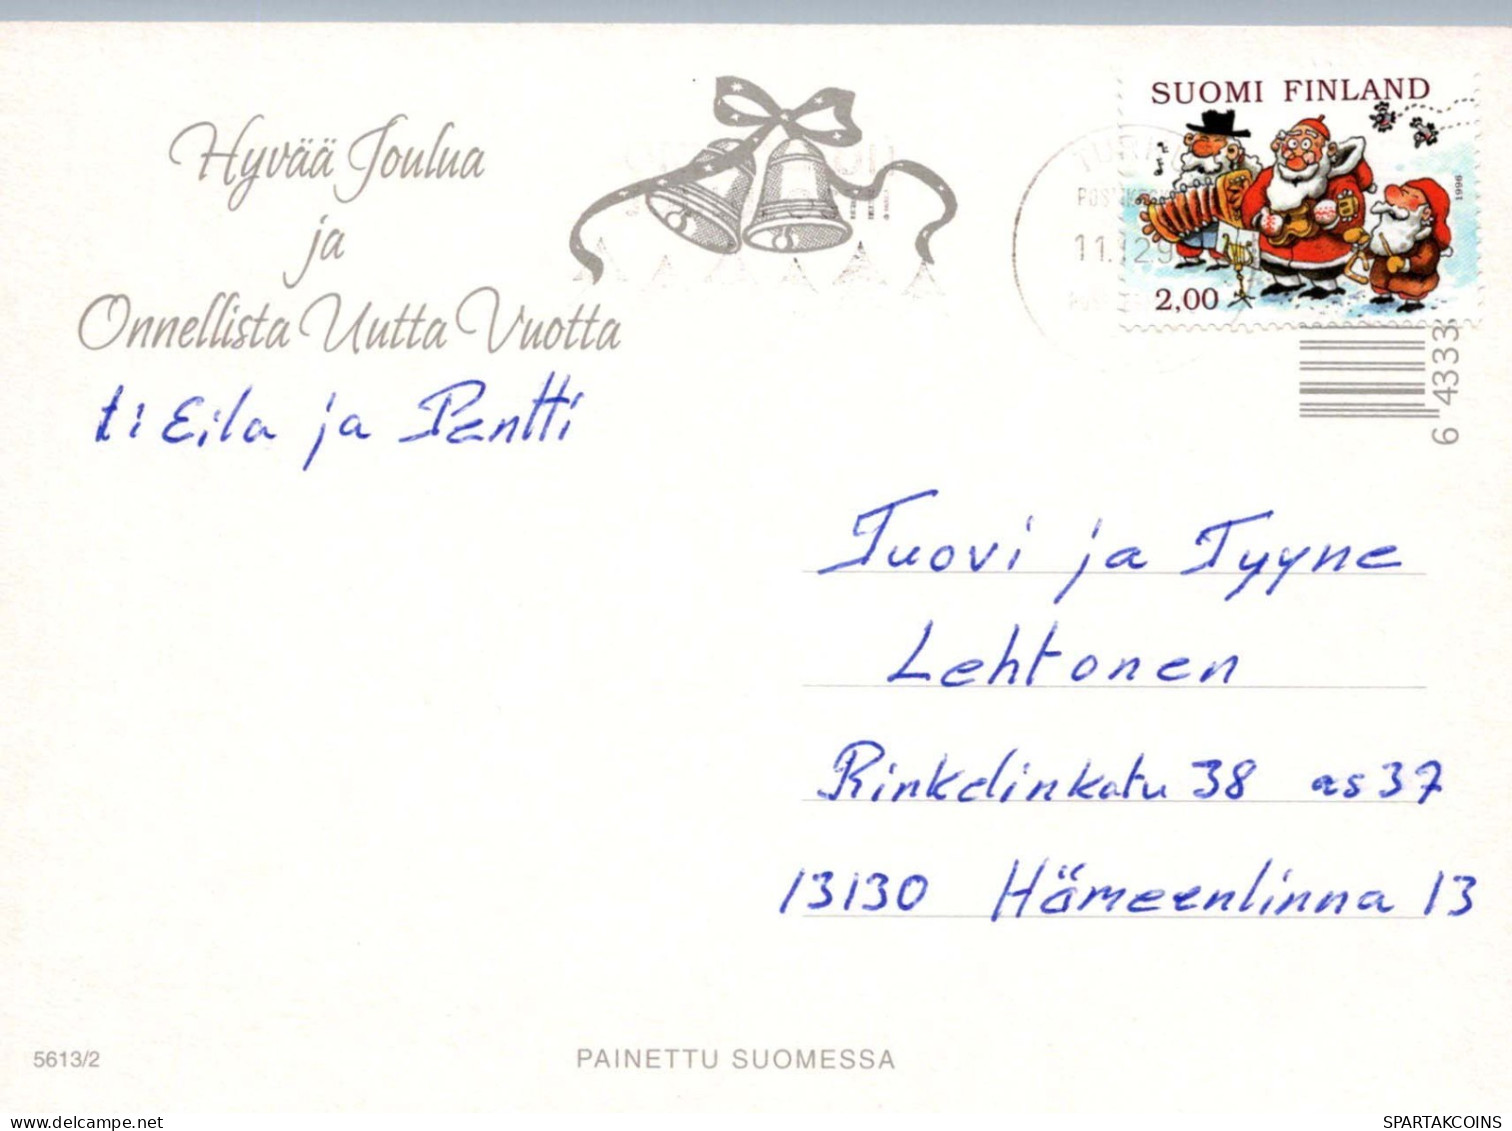 Hyvää Joulua
ja
Onnellista Uutta Vuotta
t: Eila ja Pentti
SUOMI FINLAND
1996
2,00
TURKU
11.12.9
6 4333
Tuovi ja Tyyne
Lehtonen
Rinkelinkatu 38 as 37
13130 Hämeenlinna 13
5613/2
PAINETTU SUOMESSA
delcampe.net
SPARTAKCOINS